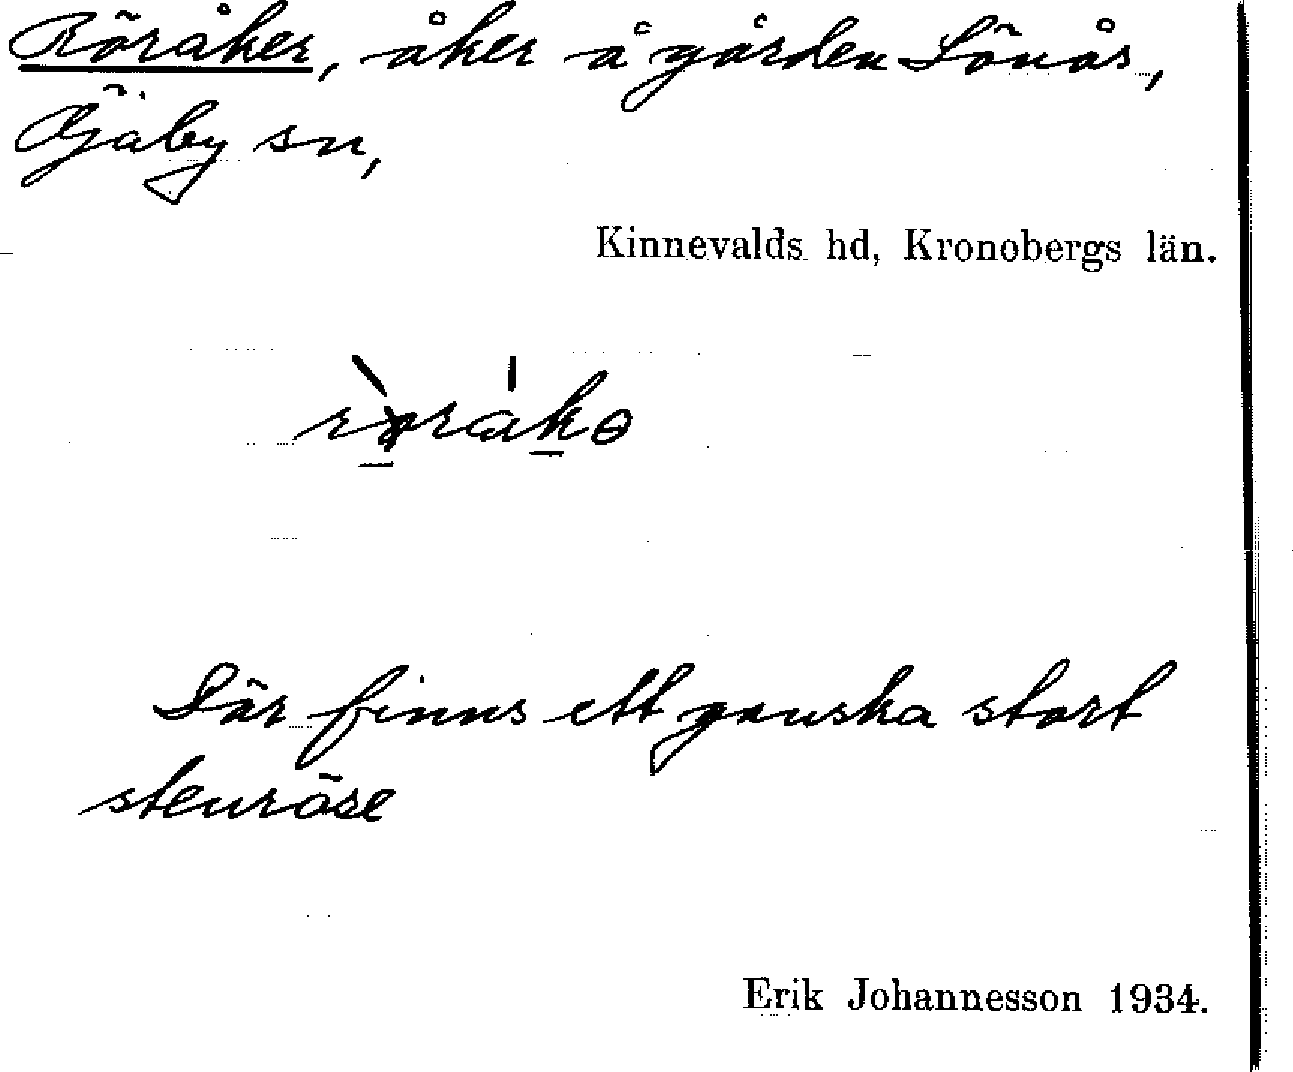 Röråker, åker å gården Lönås,
Öjaby sn,
Kinnevalds hd, Kronobergs län.
Där finns ett ganska stort
stenröse
Erik Johannesson 1934.